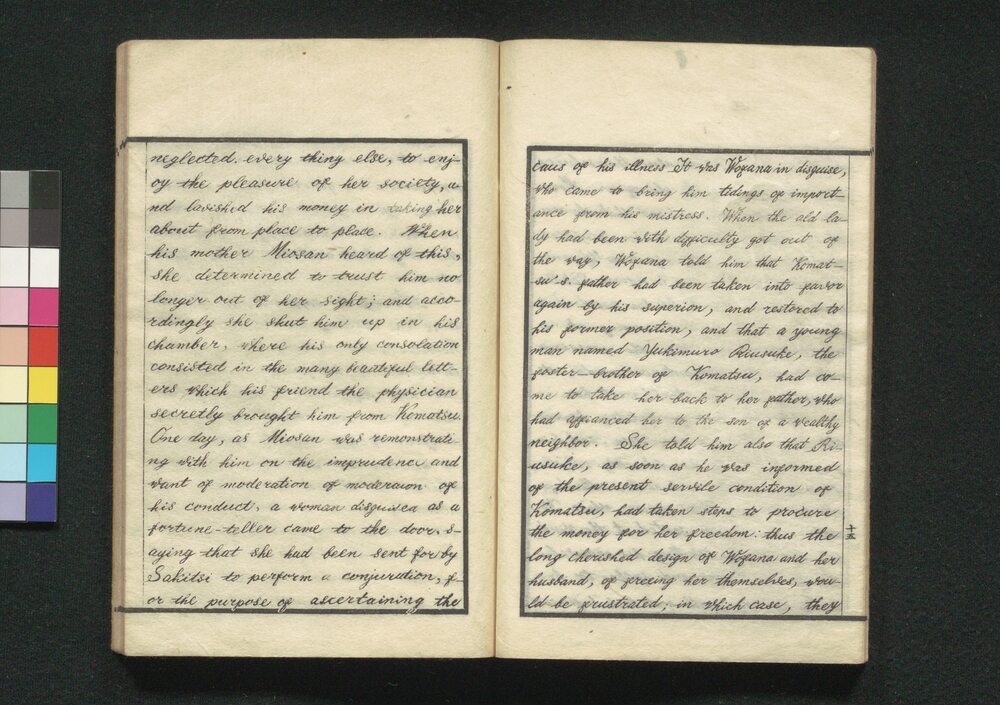 neglected. every thing else, to enj-
oy the pleasure of her society, a-
nd lavished his money in taking her
about from place to place. When
his mother Miosan heard of this,
she determined to trust him no
longer out of her sight; and acco-
rdingly she shut him up in his
chamber, where his only consolation
consisted in the many beautiful lett-
ers which his friend the physician
secretly brought him from Komatsu.
One day, as Miosan was remonstrati
ng with him on the imprudence and
want of moderation of moderaion of
his conduct, a woman disguisea as a
fortune-teller came to the door, s-
aying that she had been sent for by
Sakitsi to perform a conjuration, f-
or the purpose of ascertaining the
caus of his illness It was Wofana in disguise,
who came to bring him tidings of import-
ance from his mistress. When the old la-
dy had been with difficulty got out of
the way, Wofana told him that Komat-
su's. father had been taken into favor
again by his superion, and restored to
his former position, and that a young
man named Yukimuro Riusuke, the
foster-brother of Komatsu, had co-
me to take her back to her father, who
had affianced her to the son of a wealthy
neighbor. She told him also that Ri-
usuke, as soon as he was informed
of the present servile condition of
Komatsu, had taken steps to procure
the money for her freedom: thus the
long cherished design of Wofana and her
husband, of freeing her themselves, wou-
ld be frustrated; in which case, they
十五